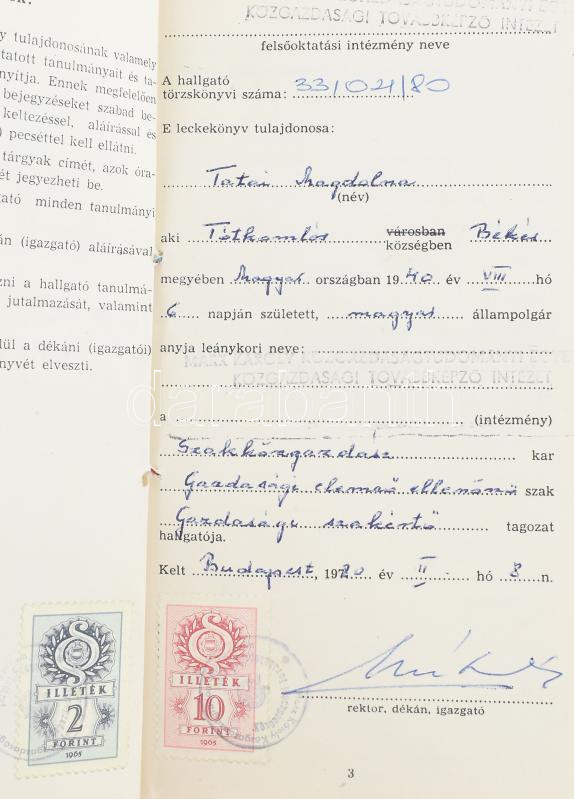 y tulajdonosának valamely
tatott tanulmányait és ta-
nyítja. Ennek megfelelően
bejegyzéseket szabad be-
keltezéssel, aláírással és
) pecséttel kell ellátni.
tárgyak címét, azok óra-
ét jegyezheti be.
ató minden tanulmányi
án (igazgató) aláírásával
zni a hallgató tanulmá-
jutalmazását, valamint
lül a dékáni (igazgatói)
nyvét elveszti.
KÖZGAZDASÁGI TOVÁBBKÉPZŐ INTÉZET
felsőoktatási intézmény neve
A hallgató
törzskönyvi száma: 33/021/80
E leckekönyv tulajdonosa:
Tatai Magdolna
(név)
aki Tótkomlós városban Békés
községben
megyében Magyar országban 1940 év VIII hó
6 napján született, magyar állampolgár
anyja leánykori neve:
MARX KÁROLY KÖZGAZDASÁGTUDOMÁNYI EGYE
KÖZGAZDASÁGI TOVÁBBKÉPZŐ INTÉZET
a (intézmény)
darabanth.com
Szakközgazdász kar
Gazdasági elemző ellenőrző szak
Gazdasági szakértő tagozat
hallgatója.
Kelt Budapest, 1980 év II hó 8 n.
rektor, dékán, igazgató
ILLETÉK
2
FORINT
1965
ILLETÉK
10
FORINT
1965
3